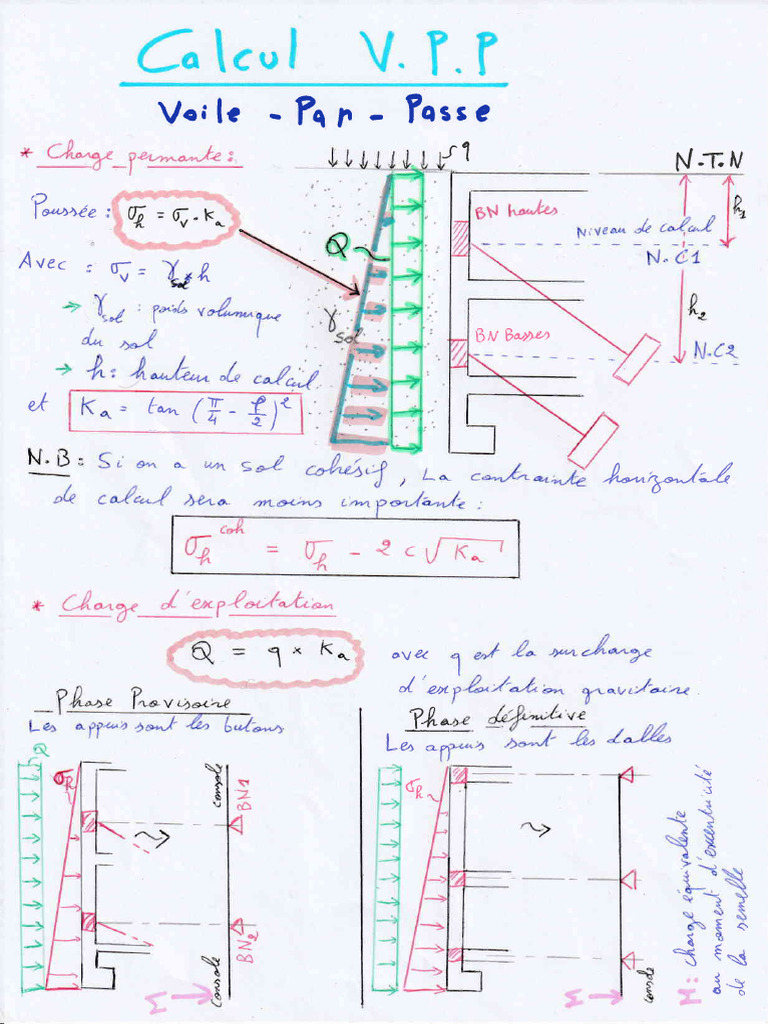 Calcul V.P.P
Voile - Par - Passe
* Charge permante :
Poussée : σh = σv . Ka
Avec : σv = γsol * h
→ γsol : poids volumique
du sol
→ h : hauteur de calcul
et Ka = tan (π/4 - φ/2)²
q
Q
γsol
N.T.N
BN hautes
Niveau de calcul
N.C1
h1
h2
BN Basses
N.C2
N.B : Si on a un sol cohésif, La contrainte horizontale
de calcul sera moins importante :
σh^coh = σh - 2 c √Ka
* Charge d'exploitation
Q = q × Ka
avec q est la surcharge
d'exploitation gravitaire.
Phase Provisoire
Les appuis sont les butons
Q
σh
console
BN1
BN2
console
M
Phase définitive
Les appuis sont les dalles
σh
M
console
M : charge équivalente
au moment d'excentricité
de la semelle